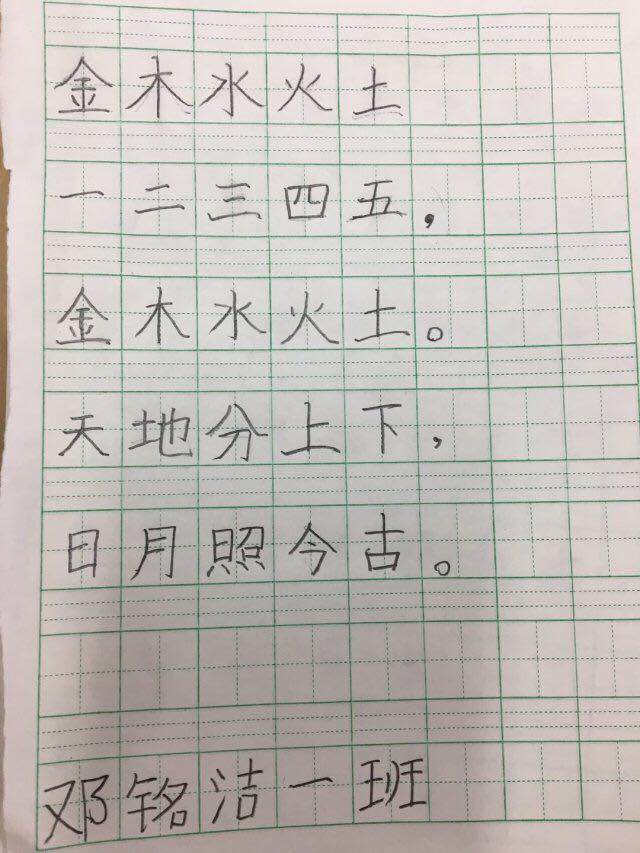 金木水火土
一二三四五，
金木水火土。
天地分上下，
日月照今古。
邓铭洁一班